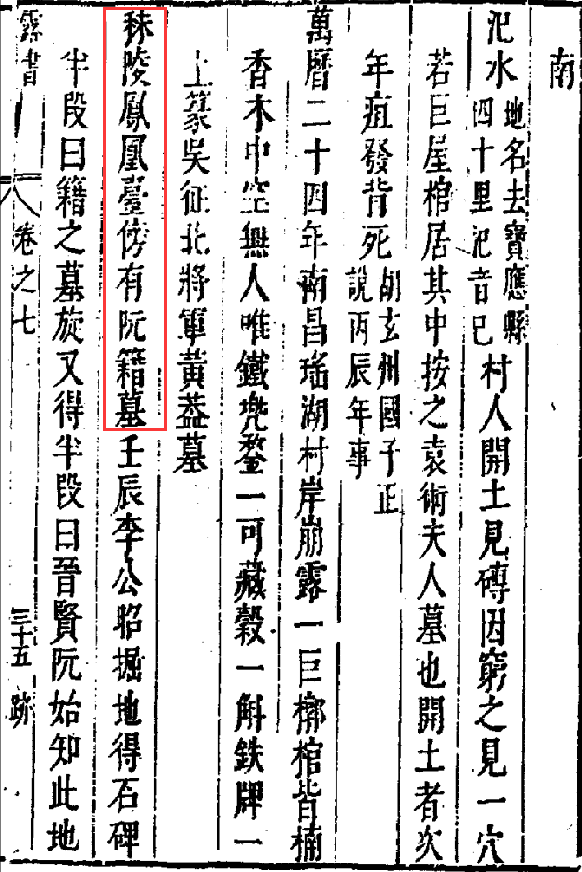 南
汜水地名去寶應縣四十里汜音巳村人開土見磚因窮之見一穴
若巨屋棺居其中按之袁術夫人墓也開土者次
年疽發背死胡玄州國子正說丙辰年事
萬曆二十四年南昌瑤湖村岸崩露一巨槨棺皆楠
香木中空無人唯鐵兠鍪一可藏穀一斛鉄牌一
上篆吳征北將軍黃葢墓
秣陵鳳凰臺傍有阮籍墓壬辰李公昭掘地得石碑
半段曰籍之墓旋又得半段曰晉賢阮始知此地
露書 卷之七 三十五 跡